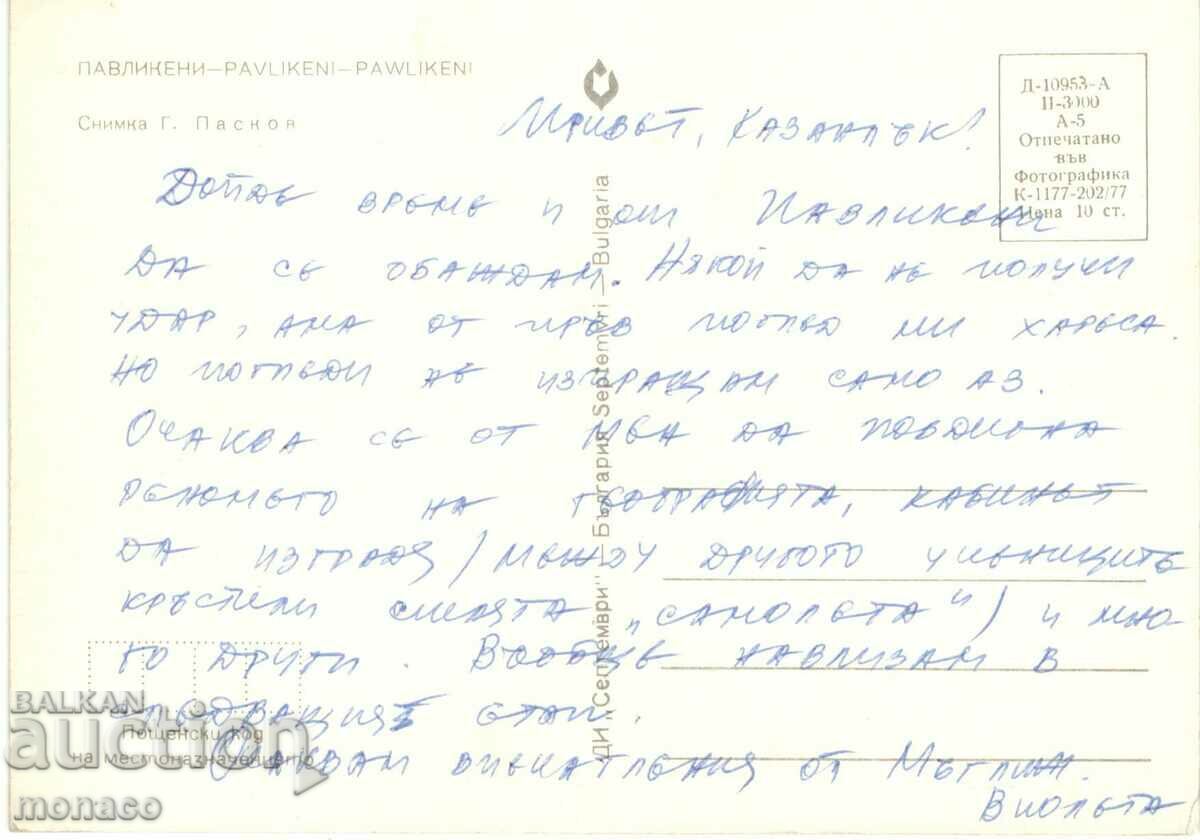 ПАВЛИКЕНИ—PAVLIKENI—PAWLIKENI
Снимка Г. Пасков
Д-10953-А
II-3000
А-5
Отпечатано
във
Фотографика
К-1177-202/77
Цена 10 ст.
ДИ „Септември" — България Septemvri — Bulgaria
Привет, Казанлък!
Дойде време и от Павликени
да се обаждам. Някой да не получи
удар, ама от пръв поглед ми хареса.
Но погледи не изпращам само аз.
Очаква се от мен да повдигна
реномето на географията, кабинет
да изградя / между другото учениците
кръстили стаята „самолета" / и мно-
го други. Въобще навлизам в
следващия етап.
Очаквам впечатления от Мъглиж.
Виолета
Пощенски код
на местоназначението
BALKAN
auction
monaco